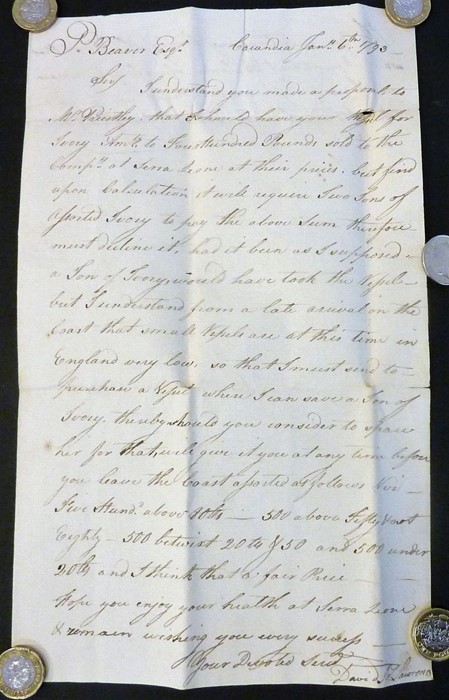 P. Beaver Esqr. Cacundia Jany. 6th 1793
Sir
I understand you made a proposal to
Mr. that I should have your Vessel for
Ivory Amt. to Four Hundred Pounds sold to the
Compy. at Serra Leone at their prices, but find
upon Calculation it will require Two Tons of
assorted Ivory to pay the above Sum therefore
must decline it, had it been as I supposed
a Ton of Ivory, would have took the Vessel
but I understand from a late arrival on the
Coast that small Vessels are at this time in
England very low, so that I must send to
purchase a Vessel where I can save a Ton of
Ivory, thereby should you consider to spare
her for that, will give it you at any time before
you leave the Coast assorted as follows Viz
Five Hund. above 80ts — 500 above Fifty & not
Eighty — 500 betwixt 20ts & 50 and 500 under
20ts and I think that a fair Price —
Hope you enjoy your health at Serra Leone
& remain wishing you every success
Your Devoted Servt
David Lawrence